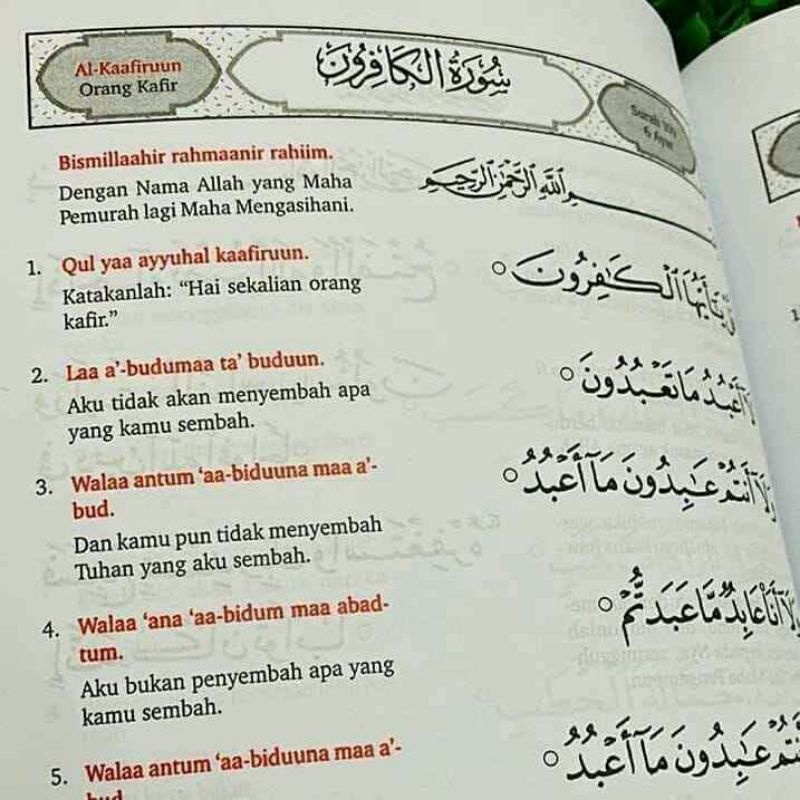 Al-Kaafiruun
Orang Kafir
سُورَةُ الْكَافِرُونَ
Surah 109
6 Ayat
Bismillaahir rahmaanir rahiim.
Dengan Nama Allah yang Maha
Pemurah lagi Maha Mengasihani.
بِسْمِ اللَّهِ الرَّحْمَٰنِ الرَّحِيمِ
1. Qul yaa ayyuhal kaafiruun.
Katakanlah: “Hai sekalian orang
kafir.”
يَٰٓأَيُّهَا الْكَٰفِرُونَ
2. Laa a’-budumaa ta’ buduun.
Aku tidak akan menyembah apa
yang kamu sembah.
لَآ أَعْبُدُ مَا تَعْبُدُونَ
3. Walaa antum ‘aa-biduuna maa a’-
bud.
Dan kamu pun tidak menyembah
Tuhan yang aku sembah.
وَلَآ أَنتُمْ عَٰبِدُونَ مَآ أَعْبُدُ
4. Walaa ‘ana ‘aa-bidum maa abad-
tum.
Aku bukan penyembah apa yang
kamu sembah.
أَنَا۠ عَابِدٌ مَّا عَبَدتُّمْ
5. Walaa antum ‘aa-biduuna maa a’-
bud.
عَٰبِدُونَ مَآ أَعْبُدُ